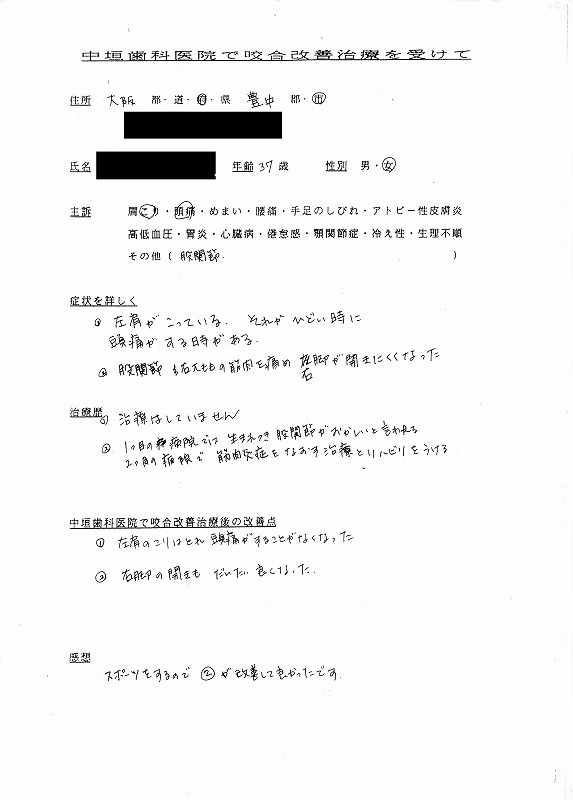 中垣歯科医院で咬合改善治療を受けて
住所 大阪 都・道・府・県 豊中 郡・市
氏名 年齢 37歳 性別 男・女
主訴 肩こり・頭痛・めまい・腰痛・手足のしびれ・アトピー性皮膚炎
高低血圧・胃炎・心臓病・倦怠感・顎関節症・冷え性・生理不順
その他( 股関節. )
症状を詳しく
① 左肩がこっている. それがひどい時に
頭痛がする時がある.
② 股関節 右太ももの筋肉を痛め 脚が開きにくくなった
右
治療歴
① 治療はしていません
② 1つ目の病院では 生まれつき股関節がおかしいと言われる
2つ目の病院で 筋肉炎症をなおす治療とリハビリをうける
中垣歯科医院で咬合改善治療後の改善点
① 左肩のこりはとれ 頭痛がすることがなくなった
② 右脚の開きも だいたい良くなった.
感想
スポーツをするので ②が改善して良かったです.